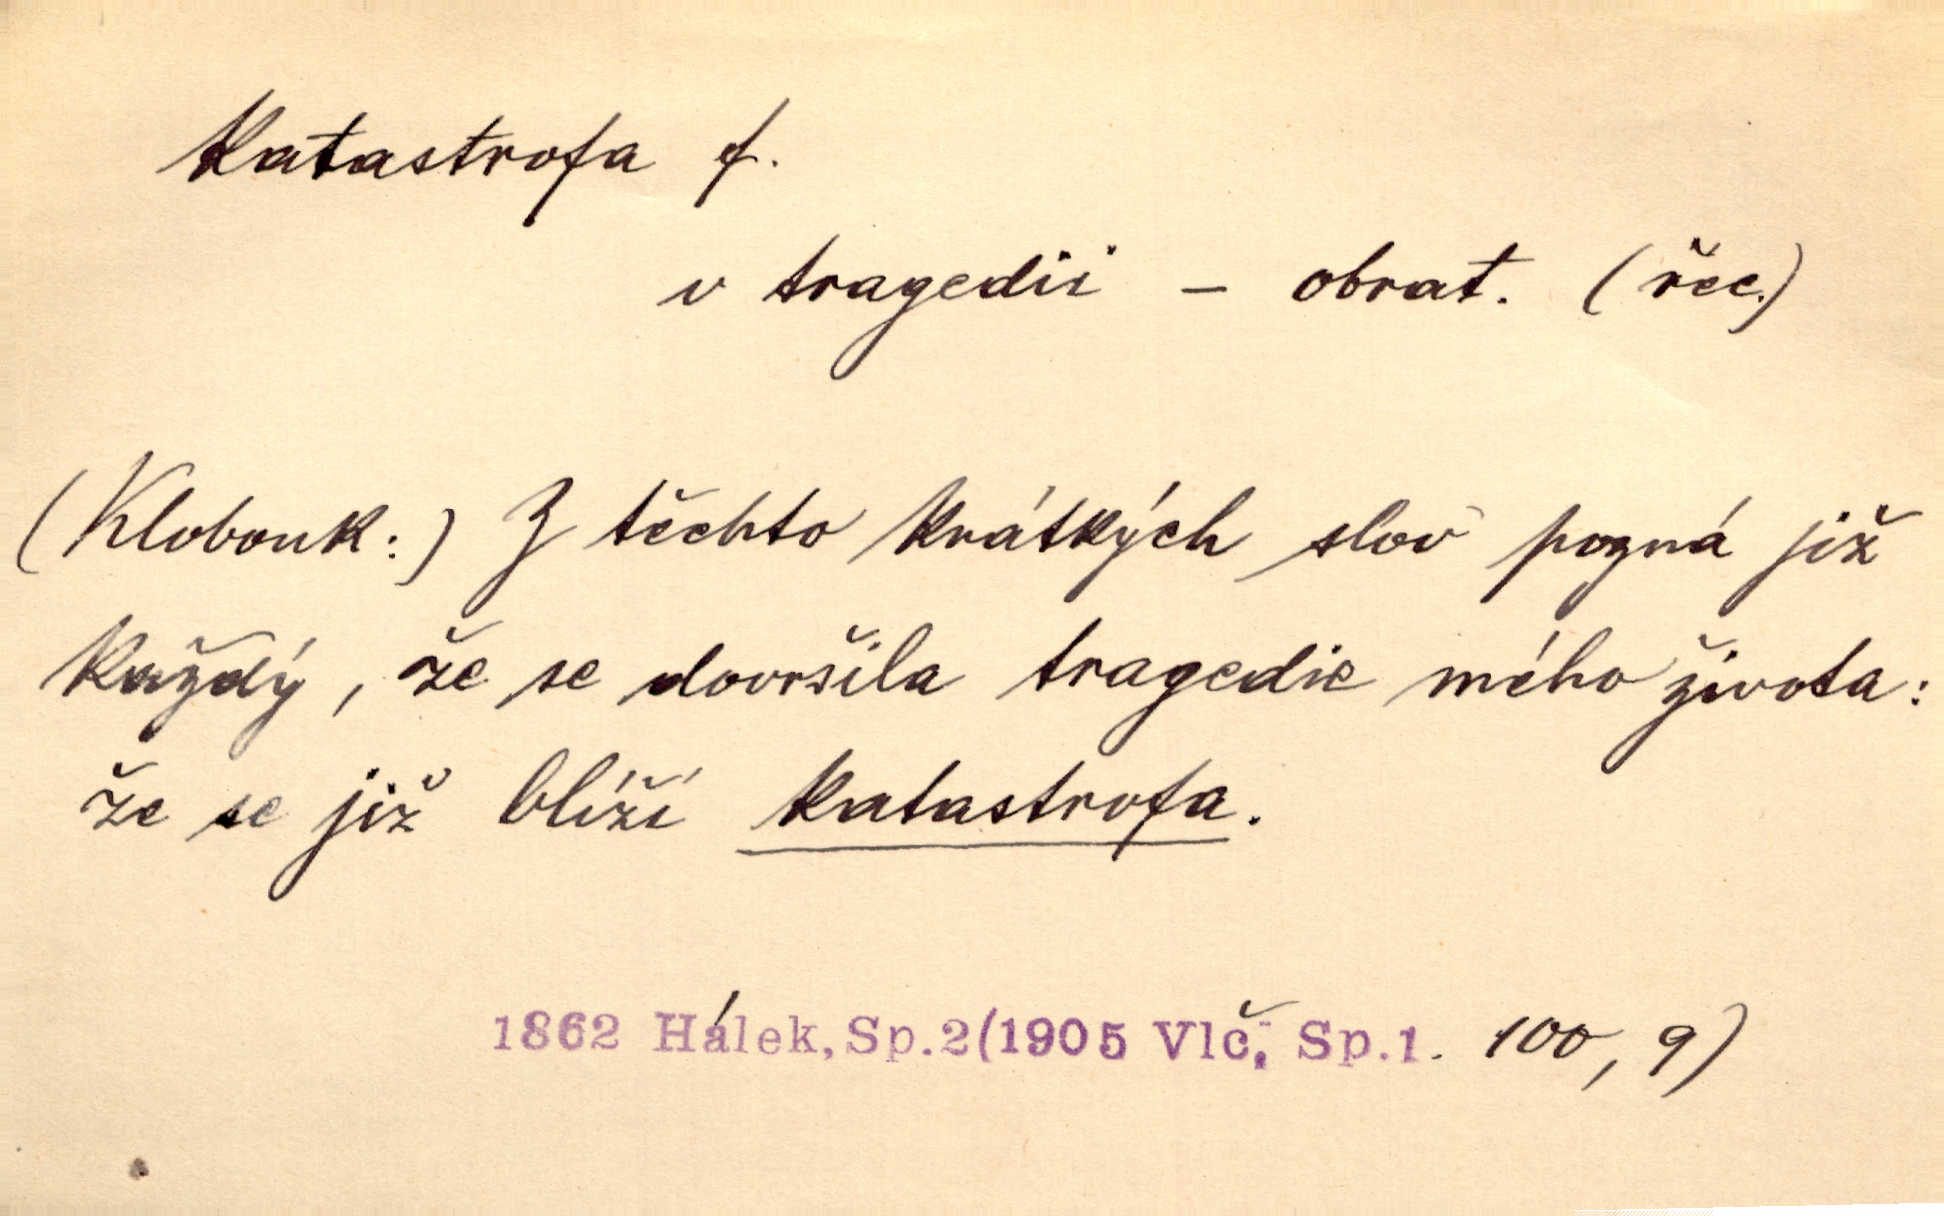 Katastrofa f.
v tragedii – obrat. (řec.)
(Klobouk:) Z těchto krátkých slov pozná již
každý, že se dovršila tragedie mého života:
že se již blíží katastrofa.
1862 Hálek, Sp.2(1905 Vlč, Sp.1. 100, 9)